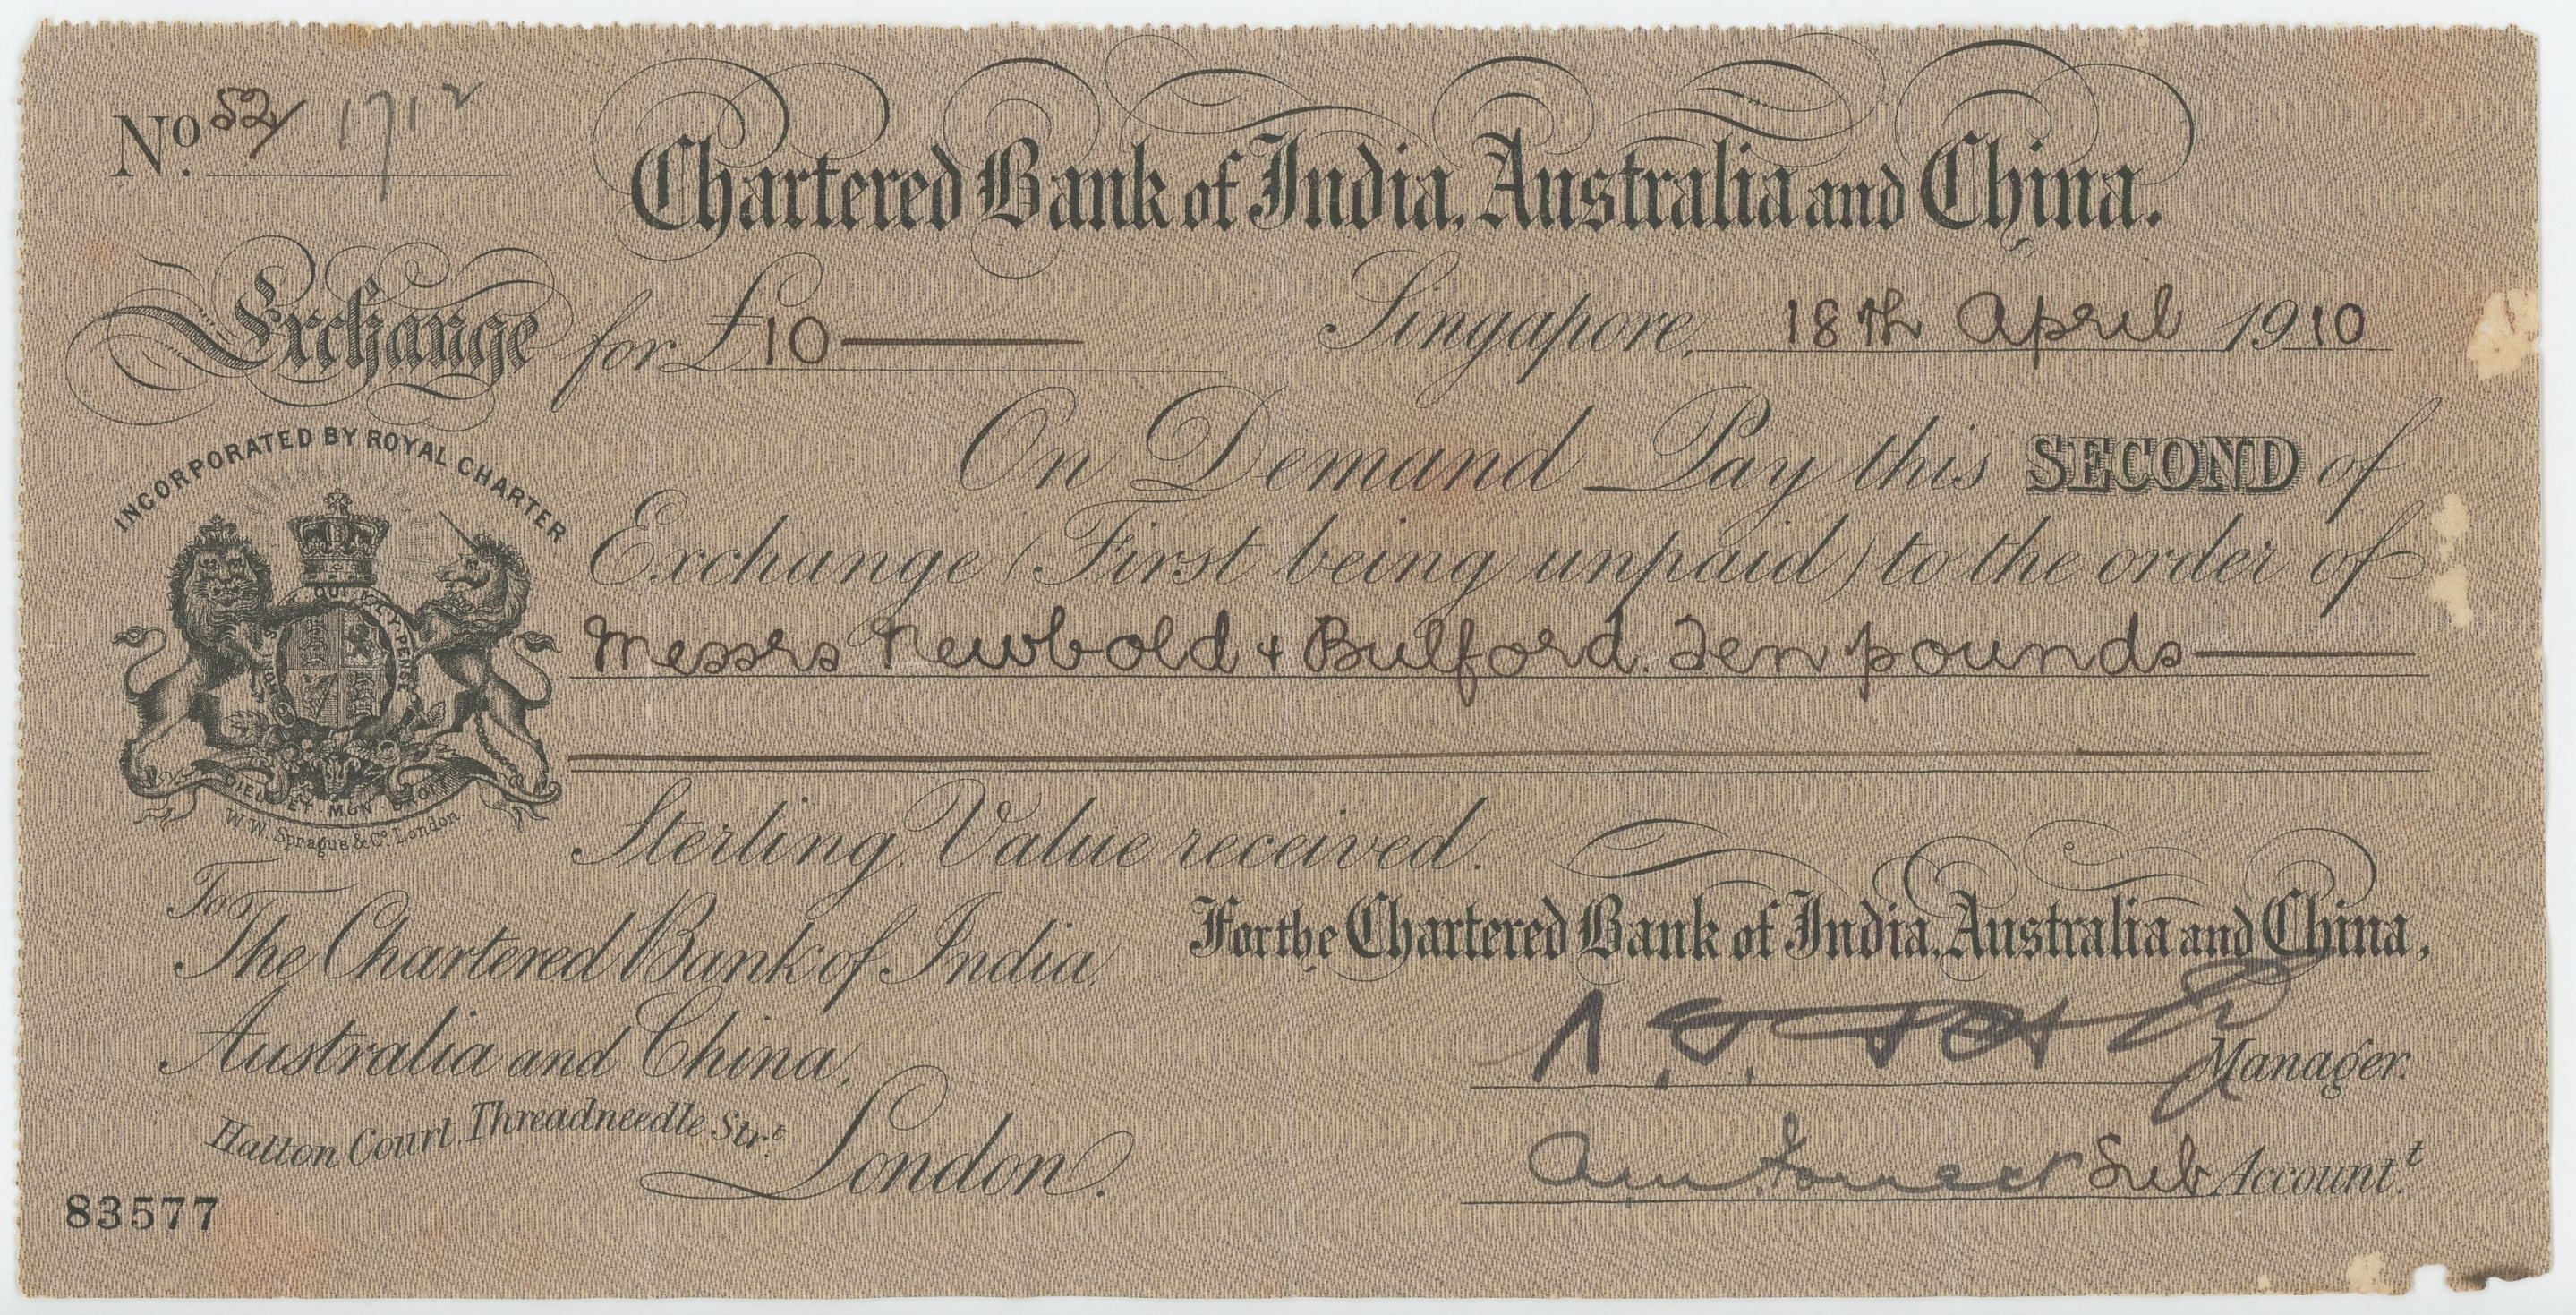 No. 52/ 1712
Chartered Bank of India, Australia and China.
Exchange for £10 Singapore, 18th April 1910
INCORPORATED BY ROYAL CHARTER
On Demand Pay this SECOND of
Exchange (First being unpaid) to the order of
Messrs Newbold & Bulford. Ten pounds
HONI SOIT QUI MAL Y PENSE
DIEU ET MON DROIT
W.W. Sprague & Co. London.
Sterling, Value received.
To
The Chartered Bank of India,
Australia and China,
Hatton Court, Threadneedle Str.t
London.
For the Chartered Bank of India, Australia and China,
Manager.
Sub Account.t
83577